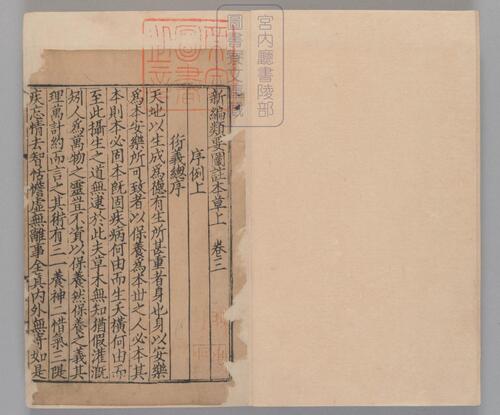 宮内廳書陵部
帝室
圖書
之章
新編類要圖註本草上 卷三
序例上
衍義總序
天地以生成爲德有生所甚重者身也身以安樂
爲本安樂所可致者以保養爲本世之人必本其
本則本必固本旣固疾病何由而生夭橫何由而
至此攝生之道無逮於此夫草木無知猶假灌漑
矧人爲萬物之靈豈不資以保養然保養之義其
理萬計約而言之其術有三一養神二惜氣三隄
疾忘情去智恬憺虛無離事全真內外無寄如是